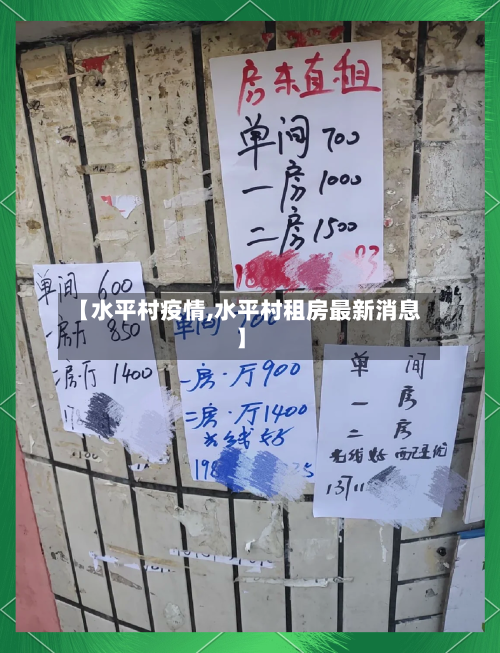 房东直租
单间 700
一房 1000
二房 1500
【水平村疫情,水平村租房最新消息
】
单间 600
一房厅 850
二房.厅 1400
单间
一房.厅900
二房.厅1400
光线好
单间
一房
二房
光线好